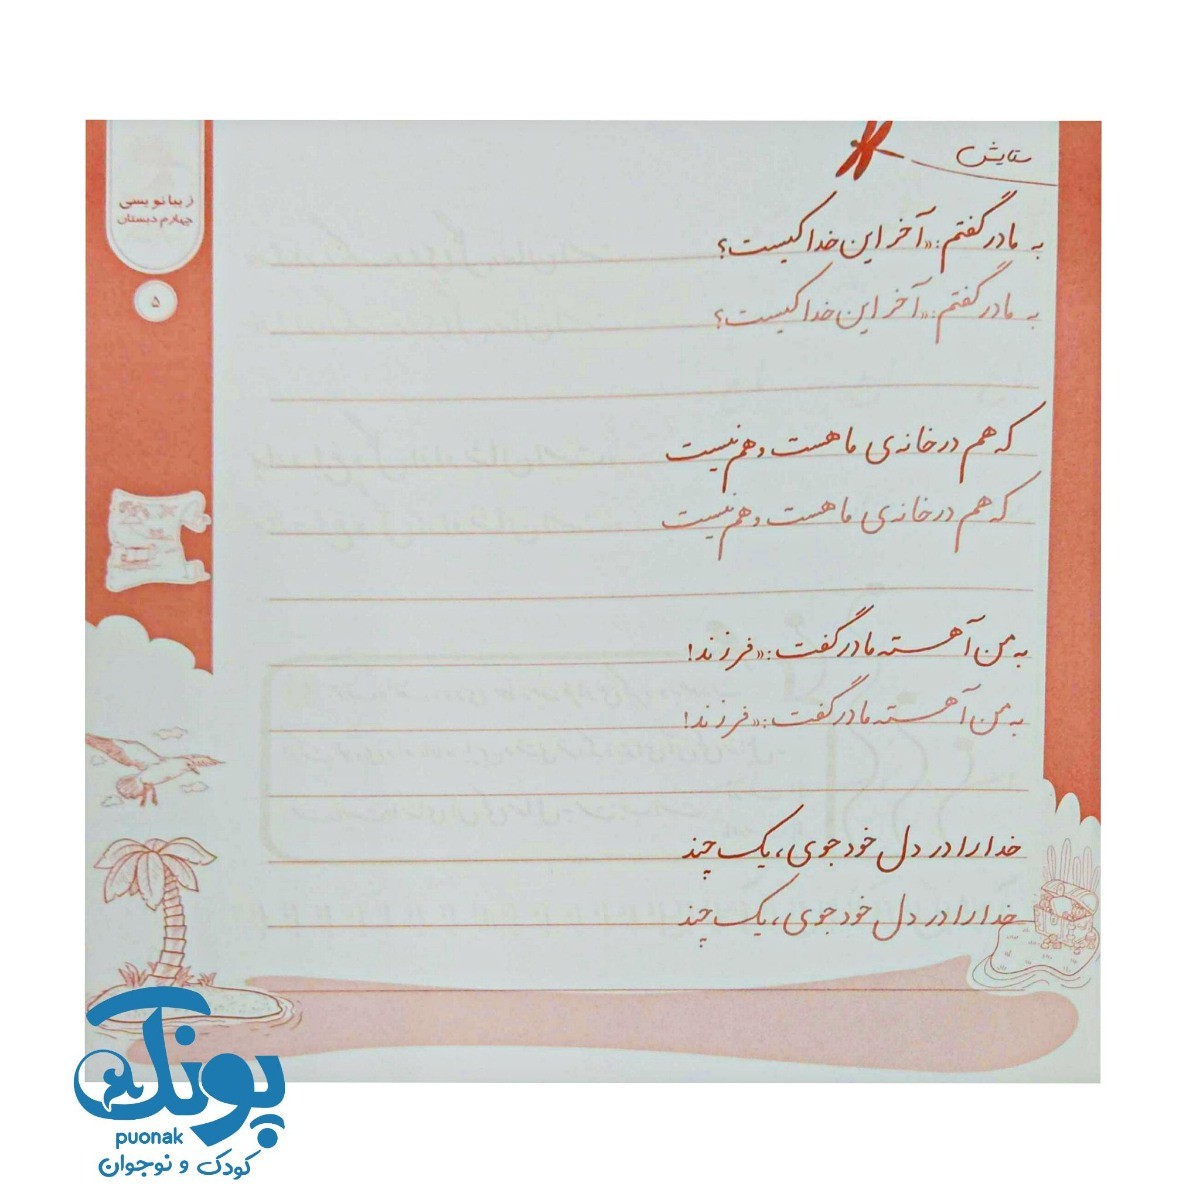 ستایش
زیبانویسی
چهارم دبستان
۵
به مادر گفتم: «آخر این خدا کیست؟
به مادر گفتم: «آخر این خدا کیست؟
که هم در خانه‌ی ما هست و هم نیست
که هم در خانه‌ی ما هست و هم نیست
به من آهسته مادر گفت: «فرزند!
به من آهسته مادر گفت: «فرزند!
خدا را در دل خود جوی، یک چند
خدا را در دل خود جوی، یک چند
پونک
puonak
کودک و نوجوان